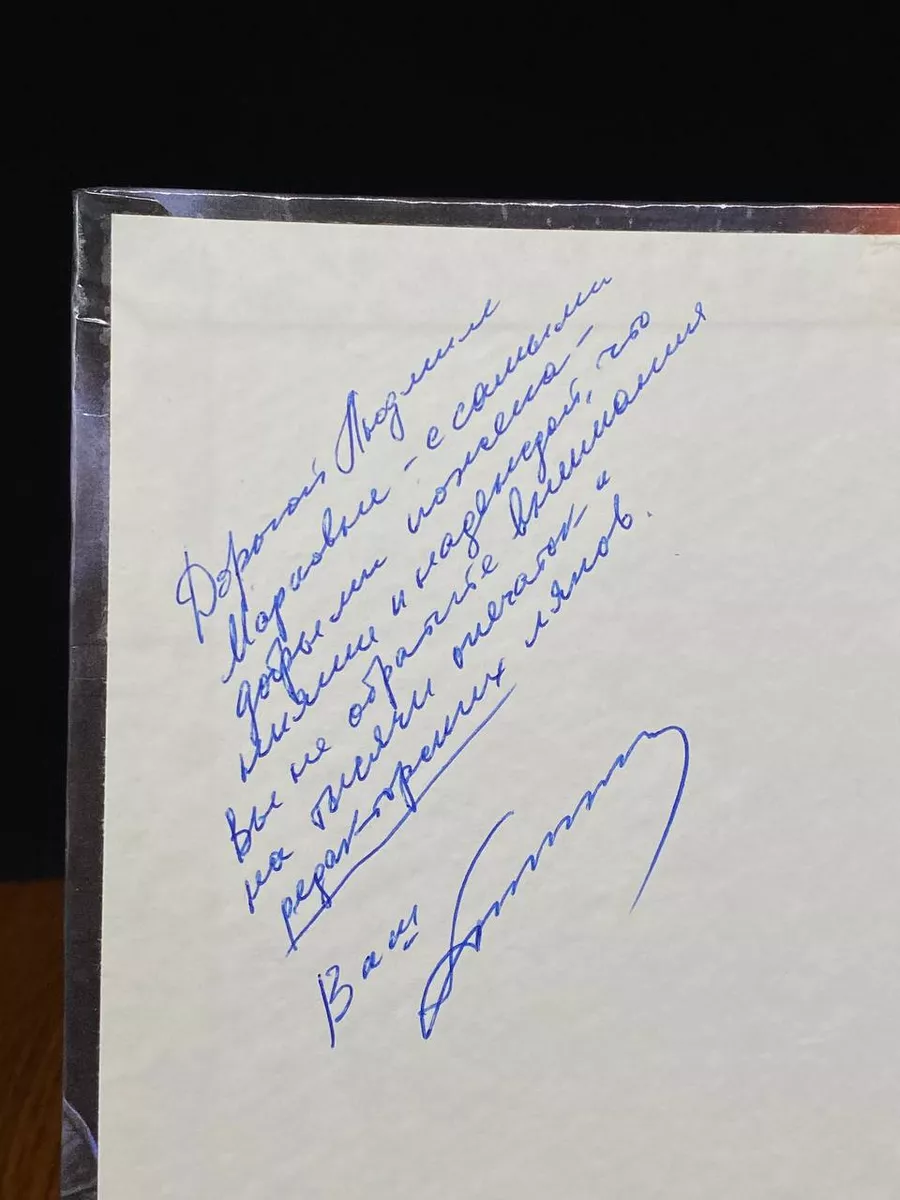 Дорогой Людмиле
Марковне - с самыми
добрыми пожела-
ниями и надеждой, что
Вы не обратите внимания
на тысячи опечаток и
редакторских ляпов.
Ваш